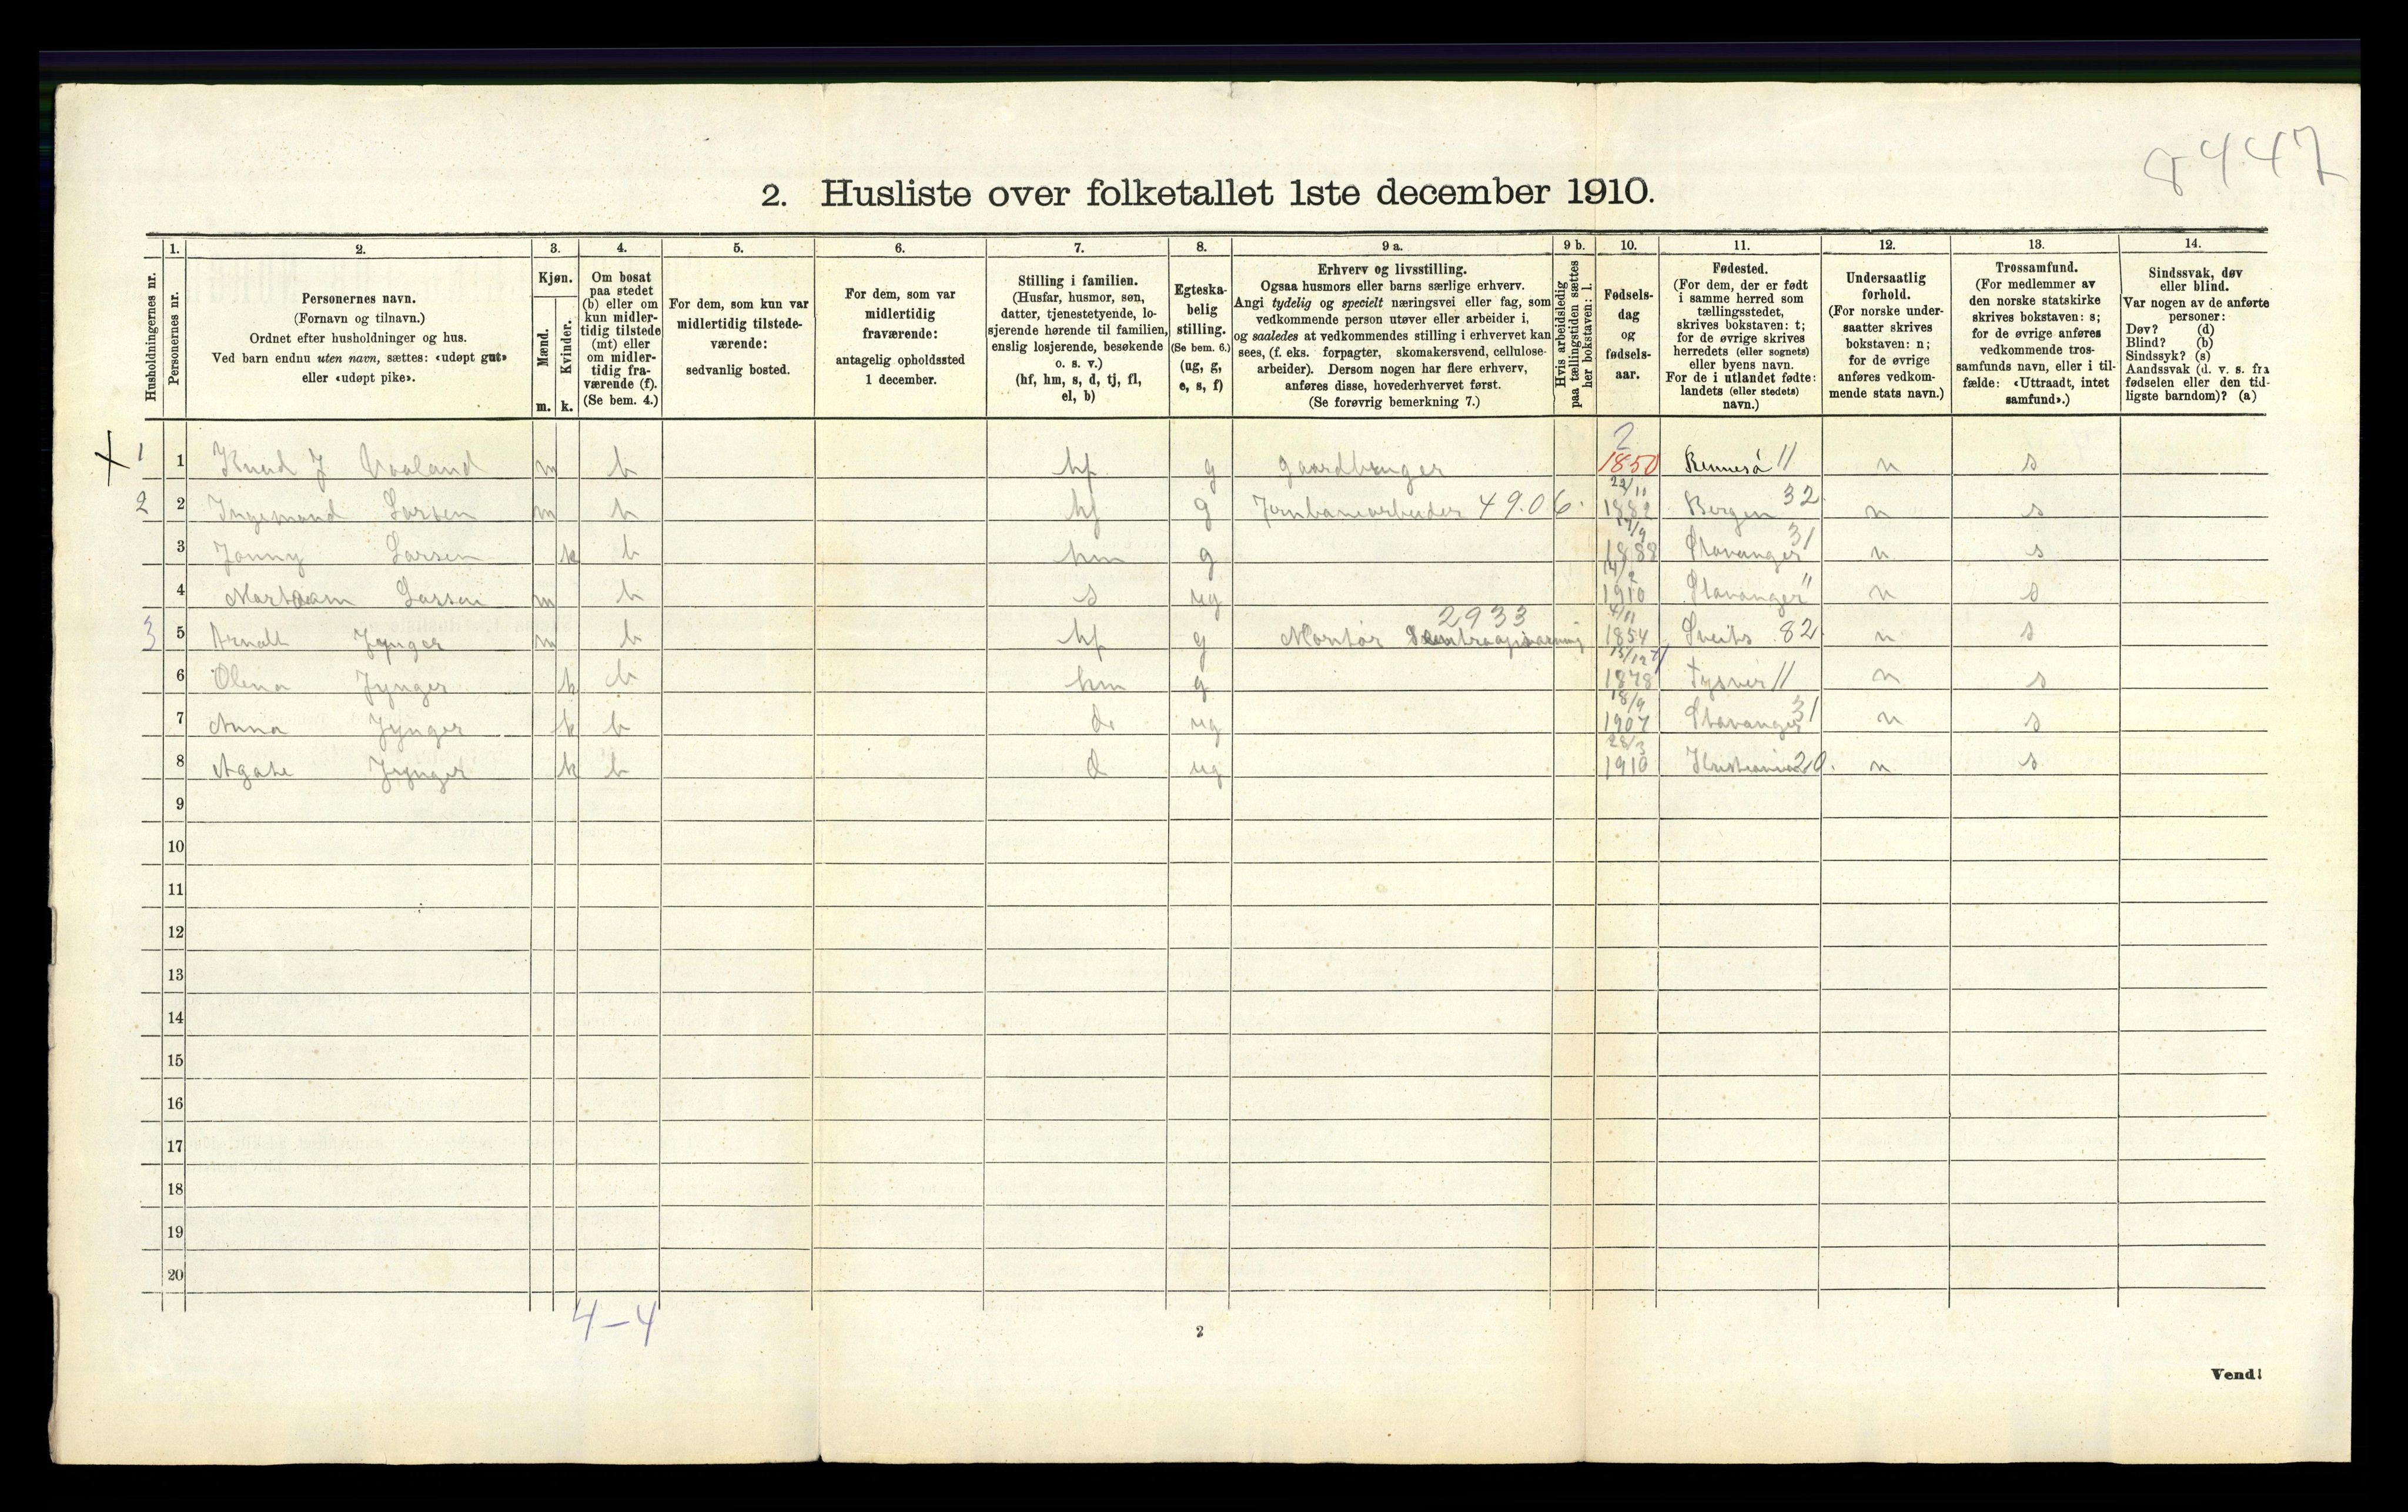 8447
2. Husliste over folketallet 1ste december 1910.
Husholdningernes nr.
1. Personernes nr.
2. Personernes navn.
(Fornavn og tilnavn.)
Ordnet efter husholdninger og hus.
Ved barn endnu uten navn, sættes: «udøpt gut»
eller «udøpt pike».
3. Kjøn.
Mænd. Kvinder.
m. k.
4. Om bosat
paa stedet
(b) eller om
kun midler-
tidig tilstede
(mt) eller
om midler-
tidig fra-
værende (f).
(Se bem. 4.)
5. For dem, som kun var
midlertidig tilstede-
værende:
sedvanlig bosted.
6. For dem, som var
midlertidig
fraværende:
antagelig opholdssted
1 december.
7. Stilling i familien.
(Husfar, husmor, søn,
datter, tjenestetyende, lo-
sjerende hørende til familien,
enslig losjerende, besøkende
o. s. v.)
(hf, hm, s, d, tj, fl,
el, b)
8. Egteska-
belig
stilling.
(Se bem. 6.)
(ug, g,
e, s, f)
9 a. Erhverv og livsstilling.
Ogsaa husmors eller barns særlige erhverv.
Angi tydelig og specielt næringsvei eller fag, som
vedkommende person utøver eller arbeider i,
og saaledes at vedkommendes stilling i erhvervet kan
sees, (f. eks. forpagter, skomakersvend, cellulose-
arbeider). Dersom nogen har flere erhverv,
anføres disse, hovederhvervet først.
(Se forøvrig bemerkning 7.)
9 b. Hvis arbeidsledig
paa tællingstiden sættes
her bokstaven: l.
10. Fødsels-
dag
og
fødsels-
aar.
11. Fødested.
(For dem, der er født
i samme herred som
tællingsstedet,
skrives bokstaven: t;
for de øvrige skrives
herredets (eller sognets)
eller byens navn.
For de i utlandet fødte:
landets (eller stedets)
navn.)
12. Undersaatlig
forhold.
(For norske under-
saatter skrives
bokstaven: n;
for de øvrige
anføres vedkom-
mende stats navn.)
13. Trossamfund.
(For medlemmer av
den norske statskirke
skrives bokstaven: s;
for de øvrige anføres
vedkommende tros-
samfunds navn, eller i til-
fælde: «Uttraadt, intet
samfund».)
14. Sindssvak, døv
eller blind.
Var nogen av de anførte
personer:
Døv? (d)
Blind? (b)
Sindssyk? (s)
Aandssvak (d. v. s. fra
fødselen eller den tid-
ligste barndom)? (a)
1 1 Knud J Vaaland m b hf g gaardbruger 2 1850 Rennesø 11 n s
2 2 Ingemand Larsen m b hf g Jernbanearbeider 49.06. 22/11 1882 Bergen 32 n s
3 Jonny Larsen k b hm g 17/9 1888 Stavanger 31 n s
4 Larsen m b s ug 14/2 1910 Stavanger " n s
3 5 Arnolt Jynger m b hf g Montør 2933 4/11 1854 Sveits 82 n s
6 Olena Jynger k b hm g 13/12 1878 Tysvær 11 n s
7 Anna Jynger k b d. ug 18/9 1907 Stavanger 31 n s
8 Agate Jynger k b d ug 28/3 1910 Kristiania 20. n s
9
10
11
12
13
14
15
16
17
18
19
20
4-4
2
Vend!